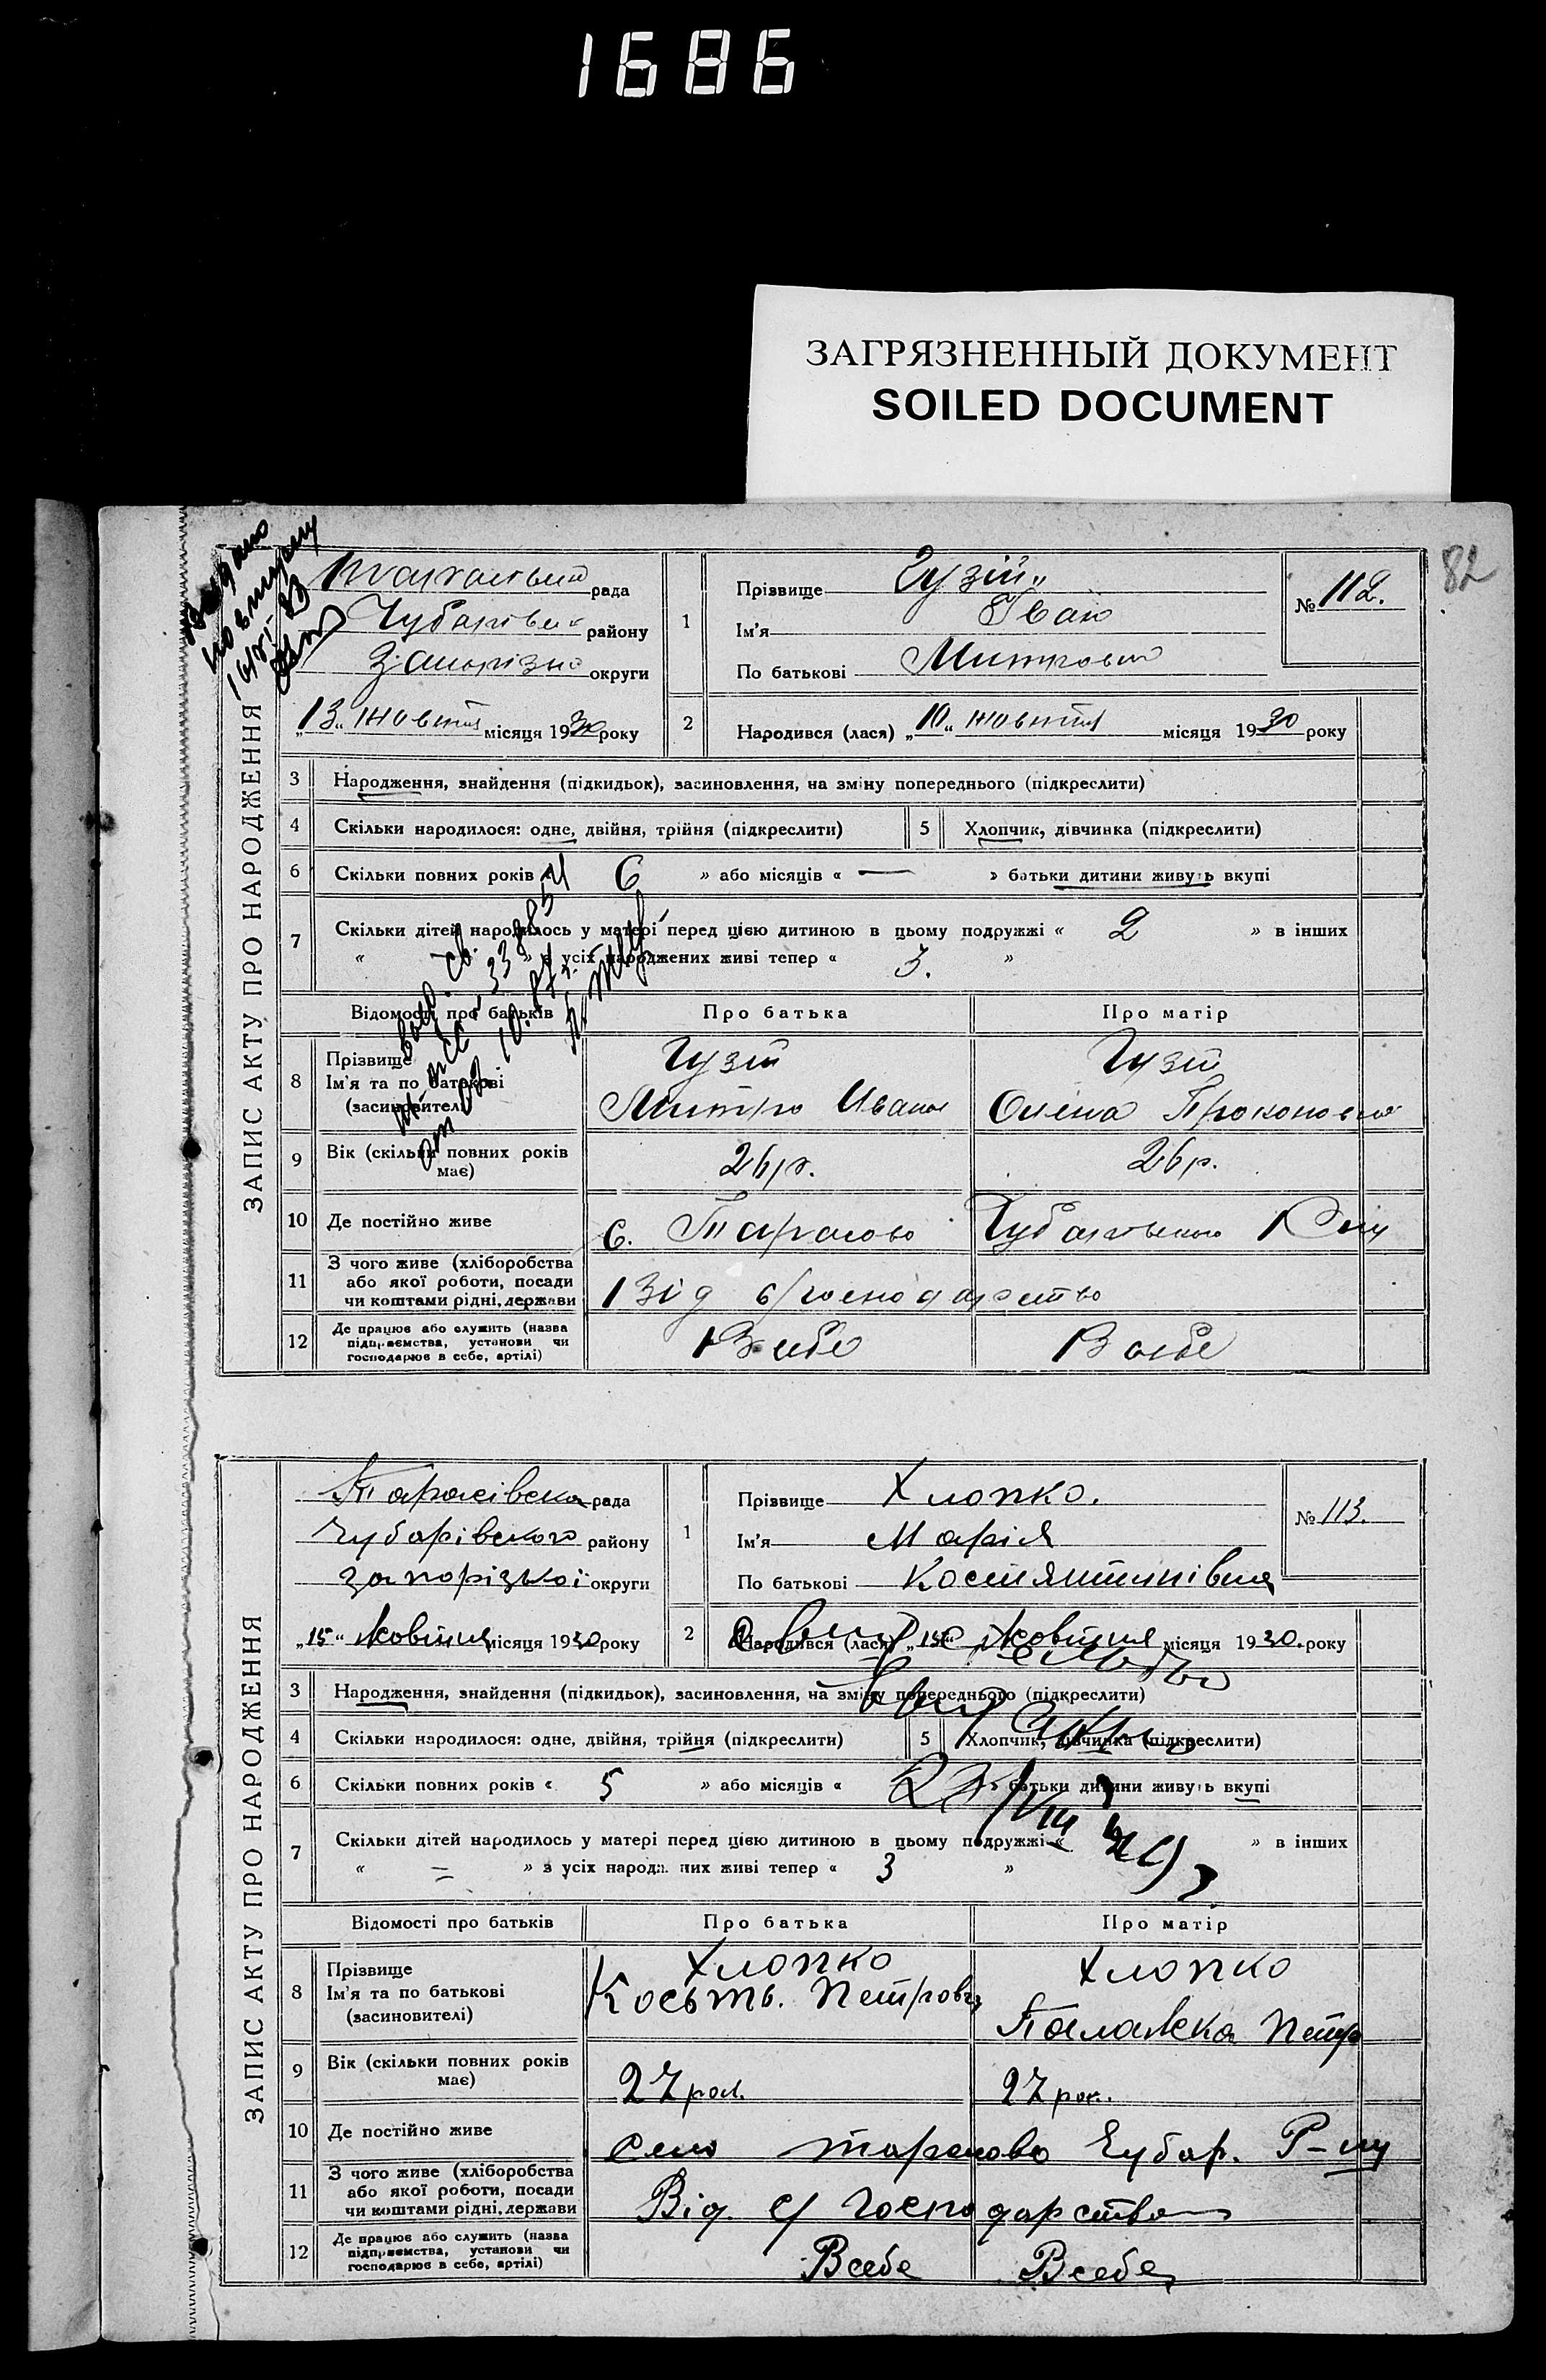 1686
ЗАГРЯЗНЕННЫЙ ДОКУМЕНТ
SOILED DOCUMENT
82
ЗАПИС АКТУ ПРО НАРОДЖЕННЯ
рада
району
округи
„13“ жовтня місяця 1930 року
1
Прізвище Гузій
Ім'я Іван
По батькові Митрович
№ 112.
2
Народився (лася) „10“ жовтня місяця 1930 року
3 Народження, знайдення (підкидьок), засиновлення, на зміну попереднього (підкреслити)
4 Скільки народилося: одне, двійня, трійня (підкреслити) 5 Хлопчик, дівчинка (підкреслити)
6 Скільки повних років « 6 » або місяців « — » батьки дитини живуть вкупі
7 Скільки дітей народилось у матері перед цією дитиною в цьому подружжі « 2 » в інших
« » з усіх народжених живі тепер « 3. »
Відомості про батьків Про батька Про матір
8 Прізвище Гузій Гузій
Ім'я та по батькові Митро Иванов Олена
(засиновителі)
9 Вік (скільки повних років має) 26 р. 26 р.
10 Де постійно живе с. Тарасово
11 З чого живе (хліборобства або якої роботи, посади чи коштами рідні, держави Від с/господарство
12 Де працює або служить (назва підприємства, установи чи господарює в себе, артілі) В себе В себе
ЗАПИС АКТУ ПРО НАРОДЖЕННЯ
Тарасівська рада
Чубарівського району
Запорізької округи
„15“ жовтня місяця 1930 року
1
Прізвище Хлопко.
Ім'я Марія
По батькові Костянтинівна
№ 113.
2
Народився (лася) „15“ жовтня місяця 1930. року
3 Народження, знайдення (підкидьок), засиновлення, на зміну попереднього (підкреслити)
4 Скільки народилося: одне, двійня, трійня (підкреслити) 5 Хлопчик, дівчинка (підкреслити)
6 Скільки повних років « 5 » або місяців « » батьки дитини живуть вкупі
7 Скільки дітей народилось у матері перед цією дитиною в цьому подружжі « » в інших
« = » з усіх народжених живі тепер « 3 »
Відомості про батьків Про батька Про матір
8 Прізвище Хлопко Хлопко
Ім'я та по батькові Косьть. Петрович Палажка Петр
(засиновителі)
9 Вік (скільки повних років має) 27 рок. 27 рок.
10 Де постійно живе село тарасово Чубар. Р-ну
11 З чого живе (хліборобства або якої роботи, посади чи коштами рідні, держави Від с/господарства
12 Де працює або служить (назва підприємства, установи чи господарює в себе, артілі) В себе В себе